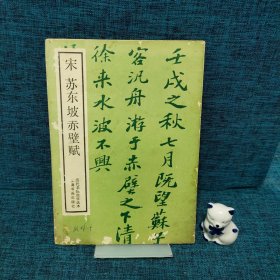 壬戌之秋七月既望蘇子
客汎舟游于赤壁之下清
徐来水波不興
宋 苏东坡赤壁赋